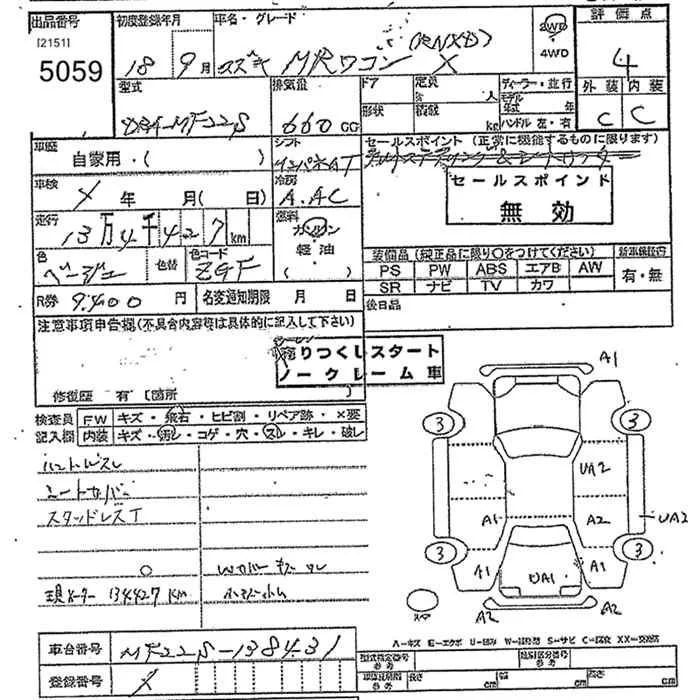 出品番号
[2151]
5059
初度登録年月
18年9月
車名・グレード
スズキ MRワゴン X
2WD
4WD
評価点
4
外装 内装
C C
型式
DBA-MF22S
排気量
660CC
ドア
形状
定員
人
積載
kg
ディーラー・並行
モデル年式 年
ハンドル 左・右
車歴
自家用・( )
シフト
インパネAT
セールスポイント (正常に機能するものに限ります)
セールスポイント
無効
車検
X 年 月( 日)
冷房
A.AC
走行
13万4千427km
燃料
ガソリン
軽油
( )
色
ベージュ
色替
色コード
ZGF
装備品 (純正品に限り○をつけてください)
PS PW ABS エアB AW
SR ナビ TV カワ
新車保証書
有・無
R券 9,400円
名変通知期限 月 日
後日品
注意事項申告欄(不具合内容等は具体的に記入して下さい)
売りつくしスタート
ノークレーム車
修復歴 有 [箇所 ]
検査員記入欄
FW キズ・飛石・ヒビ割・リペア跡・×要
内装 キズ・汚レ・コゲ・穴・スレ・キレ・破レ
ハンドルスレ
シートカバー
スタッドレスT
現メーター 134427km
小キズ小凹
A1
3 3
UA2
A1 A2 UA2
3 3
A1 UA1 A1
スペア
A2 A2
車台番号 MF22S-138431
登録番号 X
型式指定番号 参考
類別区分番号 参考
長さ cm 幅 cm 高さ cm